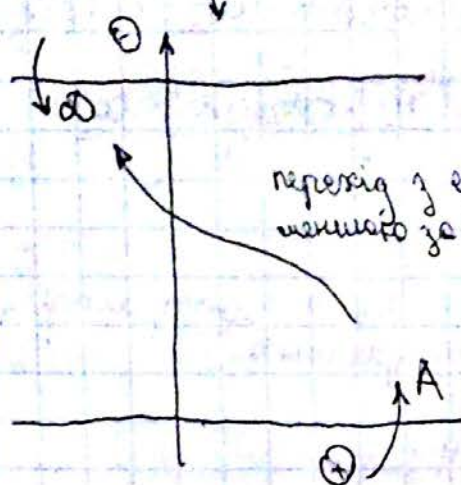 ⊖
D
перехід з е
меншого за
A
⊕